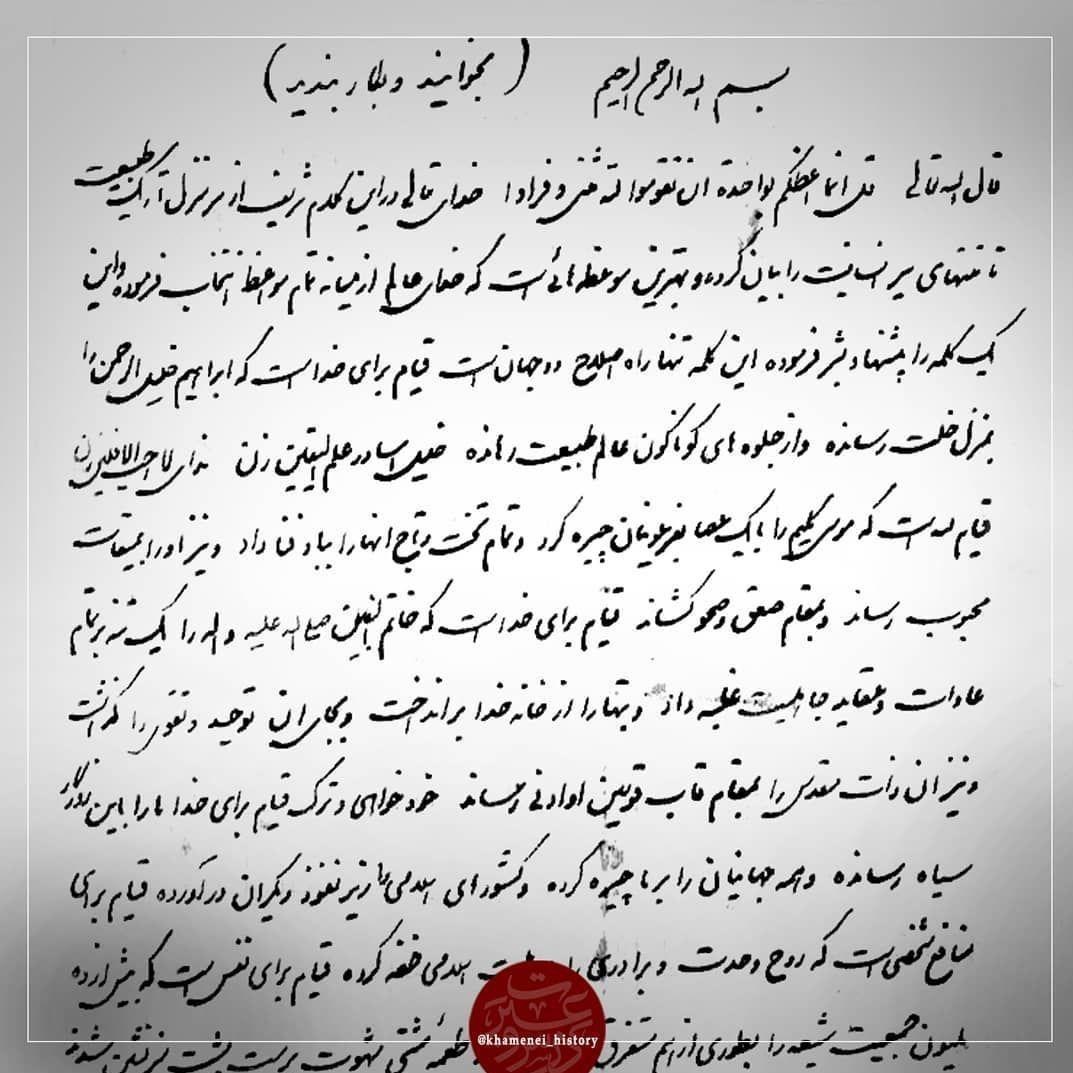 بسم الله الرحمن الرحیم (بخوانید و بکار بندید)
قال الله تعالی قل انما اعظکم بواحدة ان تقوموا لله مثنی و فرادا خدای تعالی در این کلام شریف از سرمنزل تاریک طبیعت
تا منتهای سیر انسانیت را بیان کرده و بهترین موعظه هائی است که خدای عالم از میانه تمام مواعظ انتخاب فرموده و این
یک کلمه را پیشنهاد بشر فرموده این کلمه تنها راه اصلاح دو جهان است قیام برای خدا است که ابراهیم خلیل الرحمن را
بمنزل خلت رسانده و از جلوه های گوناگون عالم طبیعت رهانده خلیل آسا در علم الیقین زن ندای لا احب الافلین زن
قیام لله است که موسی کلیم را با یک عصا بفرعونیان چیره کرد و تمام تخت و تاج انها را بباد فنا داد و نیز او را بمیقات
محبوب رساند و بمقام صعق و صحو کشاند قیام برای خدا است که خاتم النبیین صلی الله علیه و اله را یک تنه بر تمام
عادات و عقاید جاهلیت غلبه داد و بتها را از خانه خدا بر انداخت و بجای ان توحید و تقوی را گذاشت
و نیز ان ذات مقدس را بمقام قاب قوسین او ادنی رساند خودخواهی و ترک قیام برای خدا ما را باین روزگار
سیاه رسانده و همه جهانیان را بر ما چیره کرده و کشورهای اسلامی را زیر نفوذ دیگران در آورده قیام برای
منافع شخصی است که روح وحدت و برادری را در ملت اسلامی خفه کرده قیام برای نفس است که بیش از ده
ملیون جمعیت شیعه را بطوری از هم متفرق طعمه مشتی شهوت پرست پشت میز نشین شدند
@khamenei_history